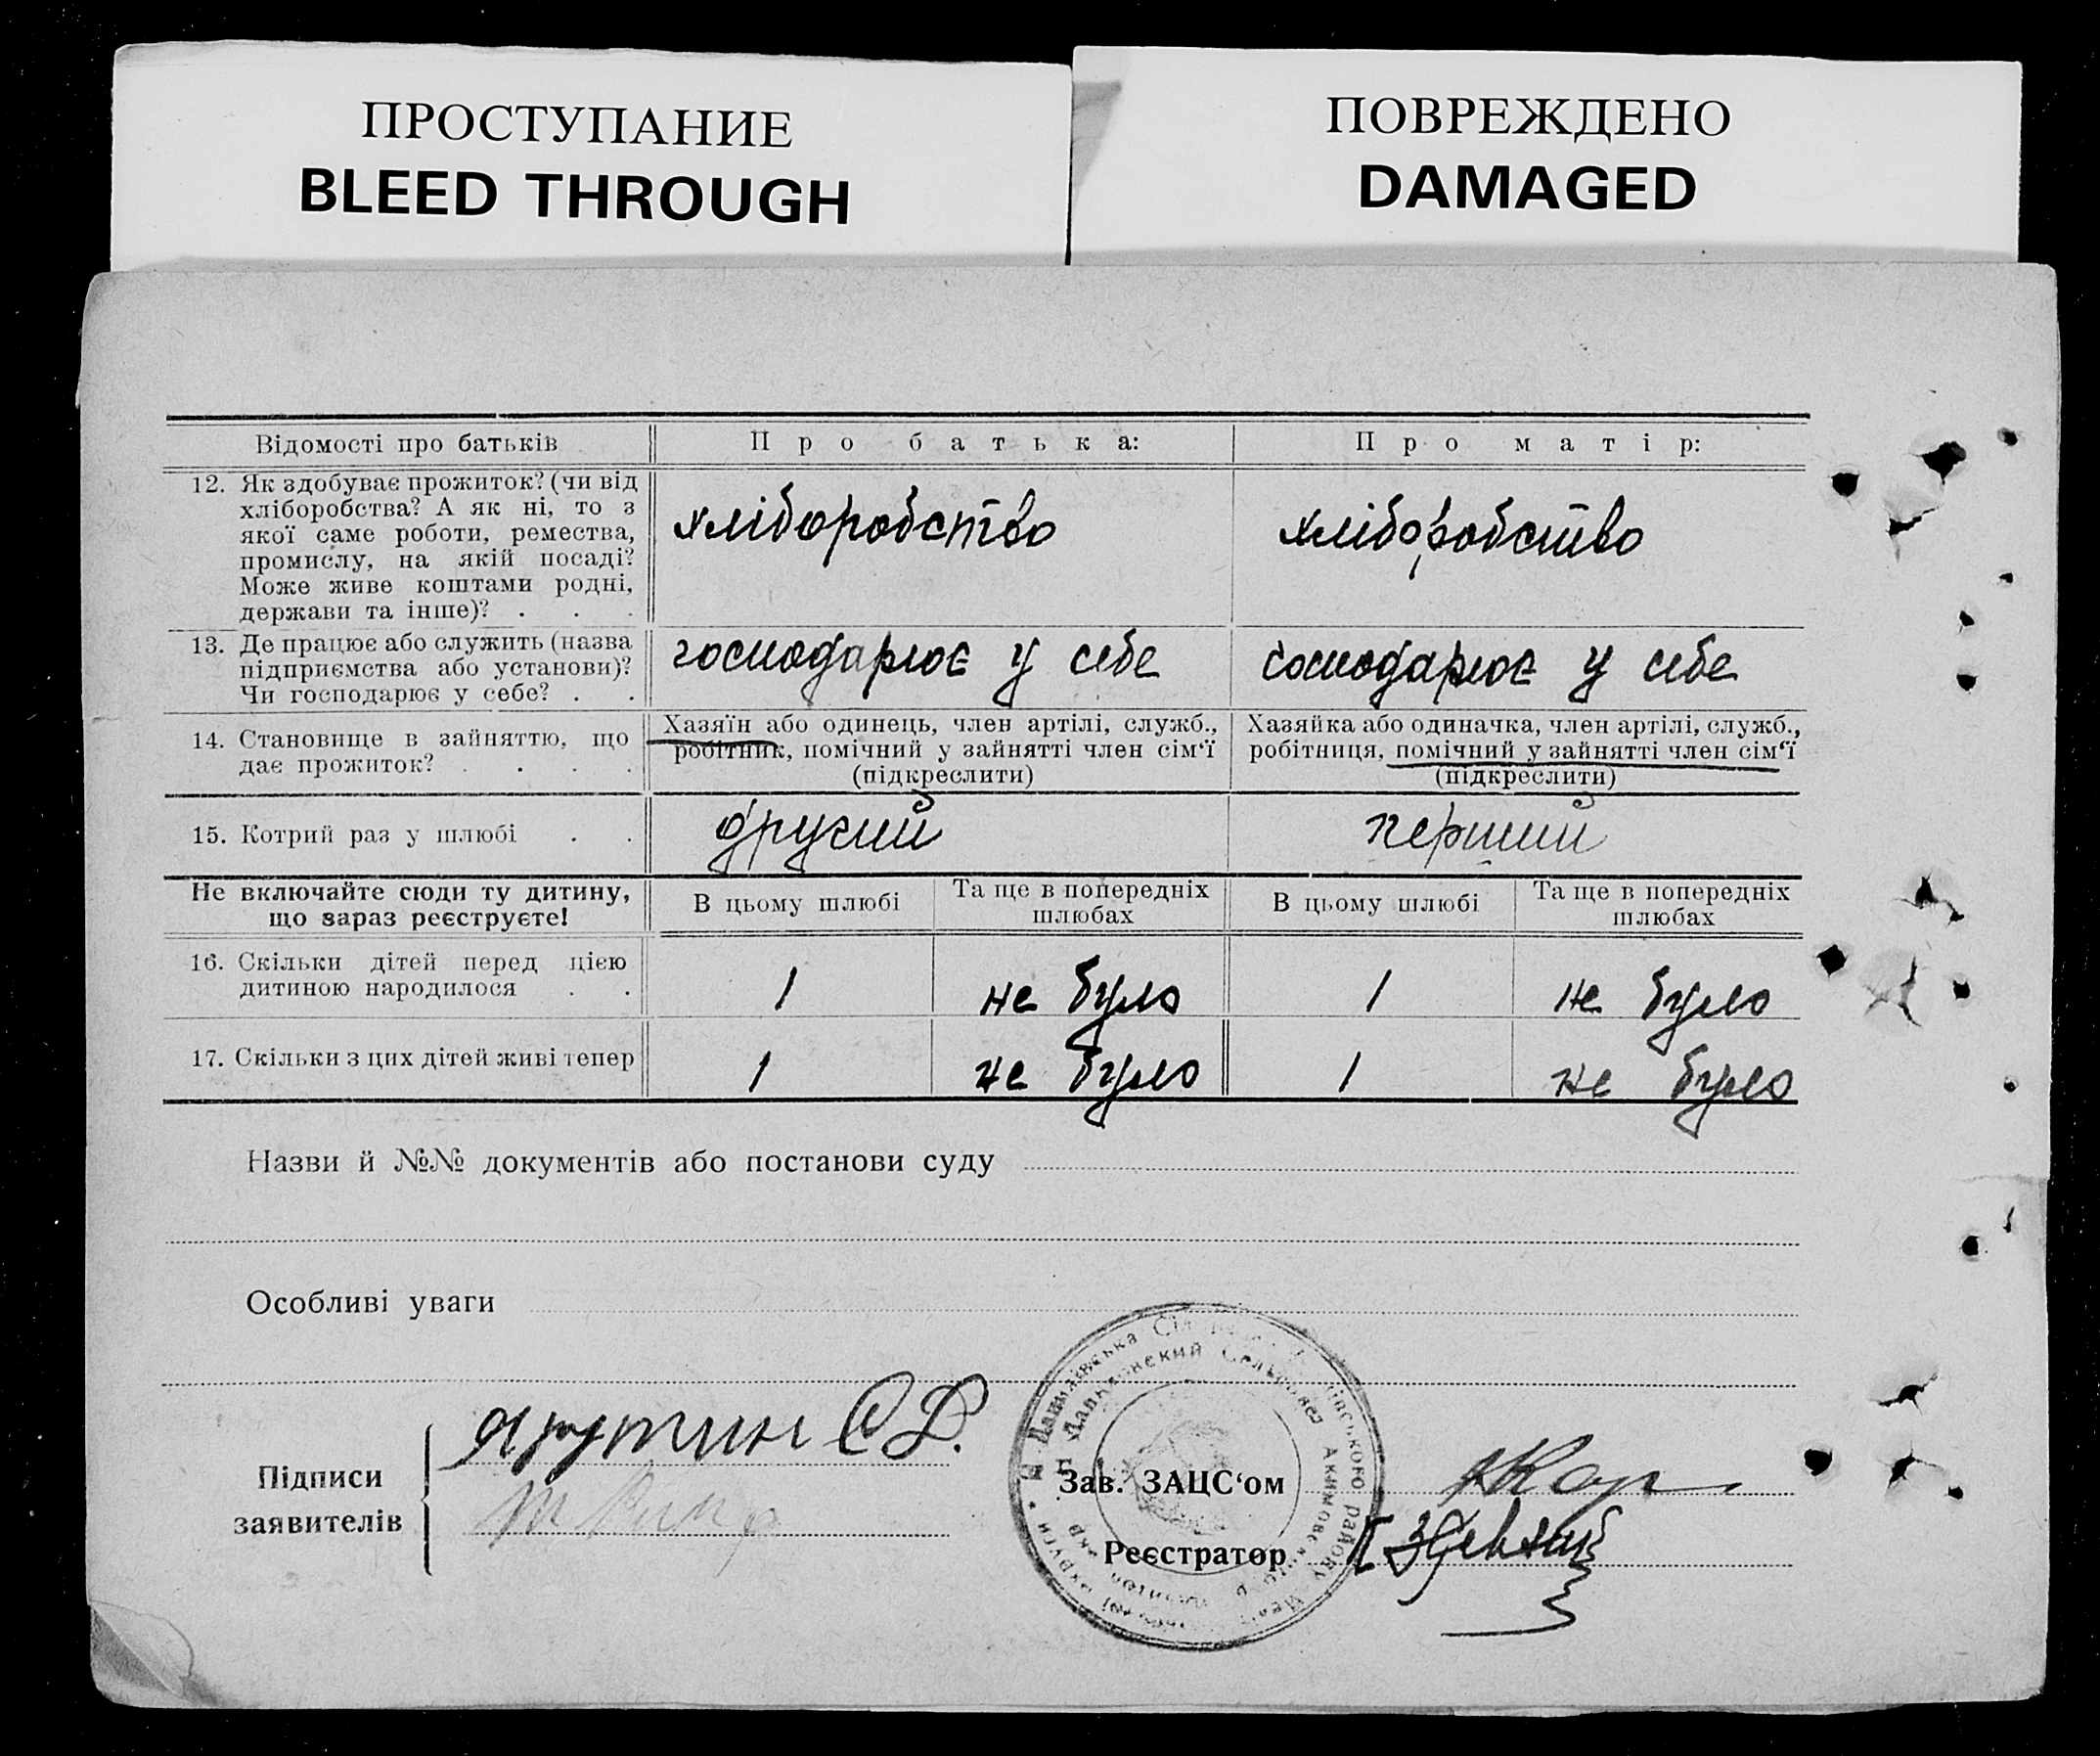 ПРОСТУПАНИЕ
BLEED THROUGH
ПОВРЕЖДЕНО
DAMAGED
Відомості про батьків
Про батька:
Про матір:
12. Як здобуває прожиток? (чи від
хліборобства? А як ні, то з
якої саме роботи, ремества,
промислу, на якій посаді?
Може живе коштами родні,
держави та інше)? . . .
хліборобство
хліборобство
13. Де працює або служить (назва
підприємства або установи)?
Чи господарює у себе? . .
господарює у себе
господарює у себе
14. Становище в зайняттю, що
дає прожиток? . . . .
Хазяїн або одинець, член артілі, служб.,
робітник, помічний у зайнятті член сім‘ї
(підкреслити)
Хазяйка або одиначка, член артілі, служб.,
робітниця, помічний у зайнятті член сім‘ї
(підкреслити)
15. Котрий раз у шлюбі . .
другий
перший
Не включайте сюди ту дитину,
що зараз реєструєте!
В цьому шлюбі
Та ще в попередніх
шлюбах
В цьому шлюбі
Та ще в попередніх
шлюбах
16. Скільки дітей перед цією
дитиною народилося . .
1
не було
1
не було
17. Скільки з цих дітей живі тепер
1
не було
1
не було
Назви й №№ документів або постанови суду
Особливі уваги
Підписи
заявителів
Зав. ЗАЦС‘ом
Реєстратор